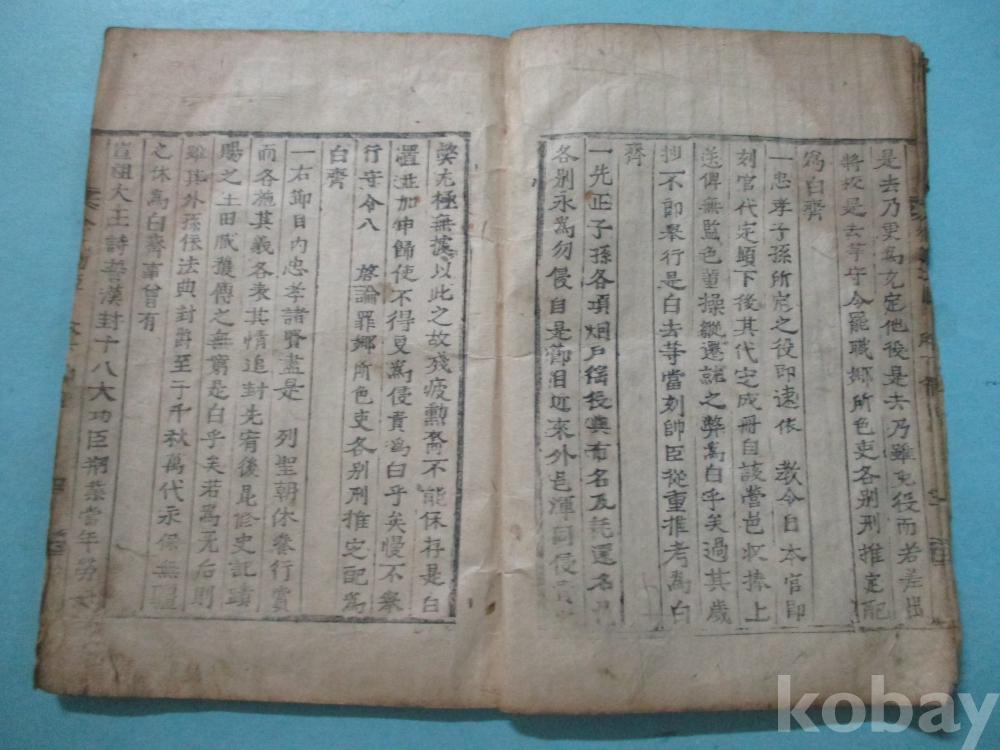 是去乃更爲充定他役是去乃雖免役而若差出
將校是去等守令罷職鄕所色吏各別刑推定配
爲白齊
一忠孝子孫所定之役卽速依 敎令日本官卽
刻官代定頉下後其代定成冊自該營邑收捧上
送俾無監色輩操縱遷就之弊爲白乎矣過其歲
抄不卽擧行是白去等當刻帥臣從重推考爲白
齊
一先正子孫各項烟戶徭役與布名及還名
各別永爲勿侵自是節目近來外邑渾同侵
弊尤極無據以此之故殘疲勳裔不能保存是白
置並加伸歸使不得更爲侵責爲白乎矣慢不擧
行守令入 啓論罪鄕所色吏各別刑推定配爲
白齊
一右節目內忠孝諸賢盡是 列聖朝休養行實
而各施其義各表其情追封先宥後昆修史記蹟
賜之土田臧獲傳之無窮是白乎矣若爲无后則
雖其外孫依法典封爵至于千秋萬代永保無疆
之休爲白齊事曾有
宣祖大王詩誓漢封十八大功臣朔 當年
kobay